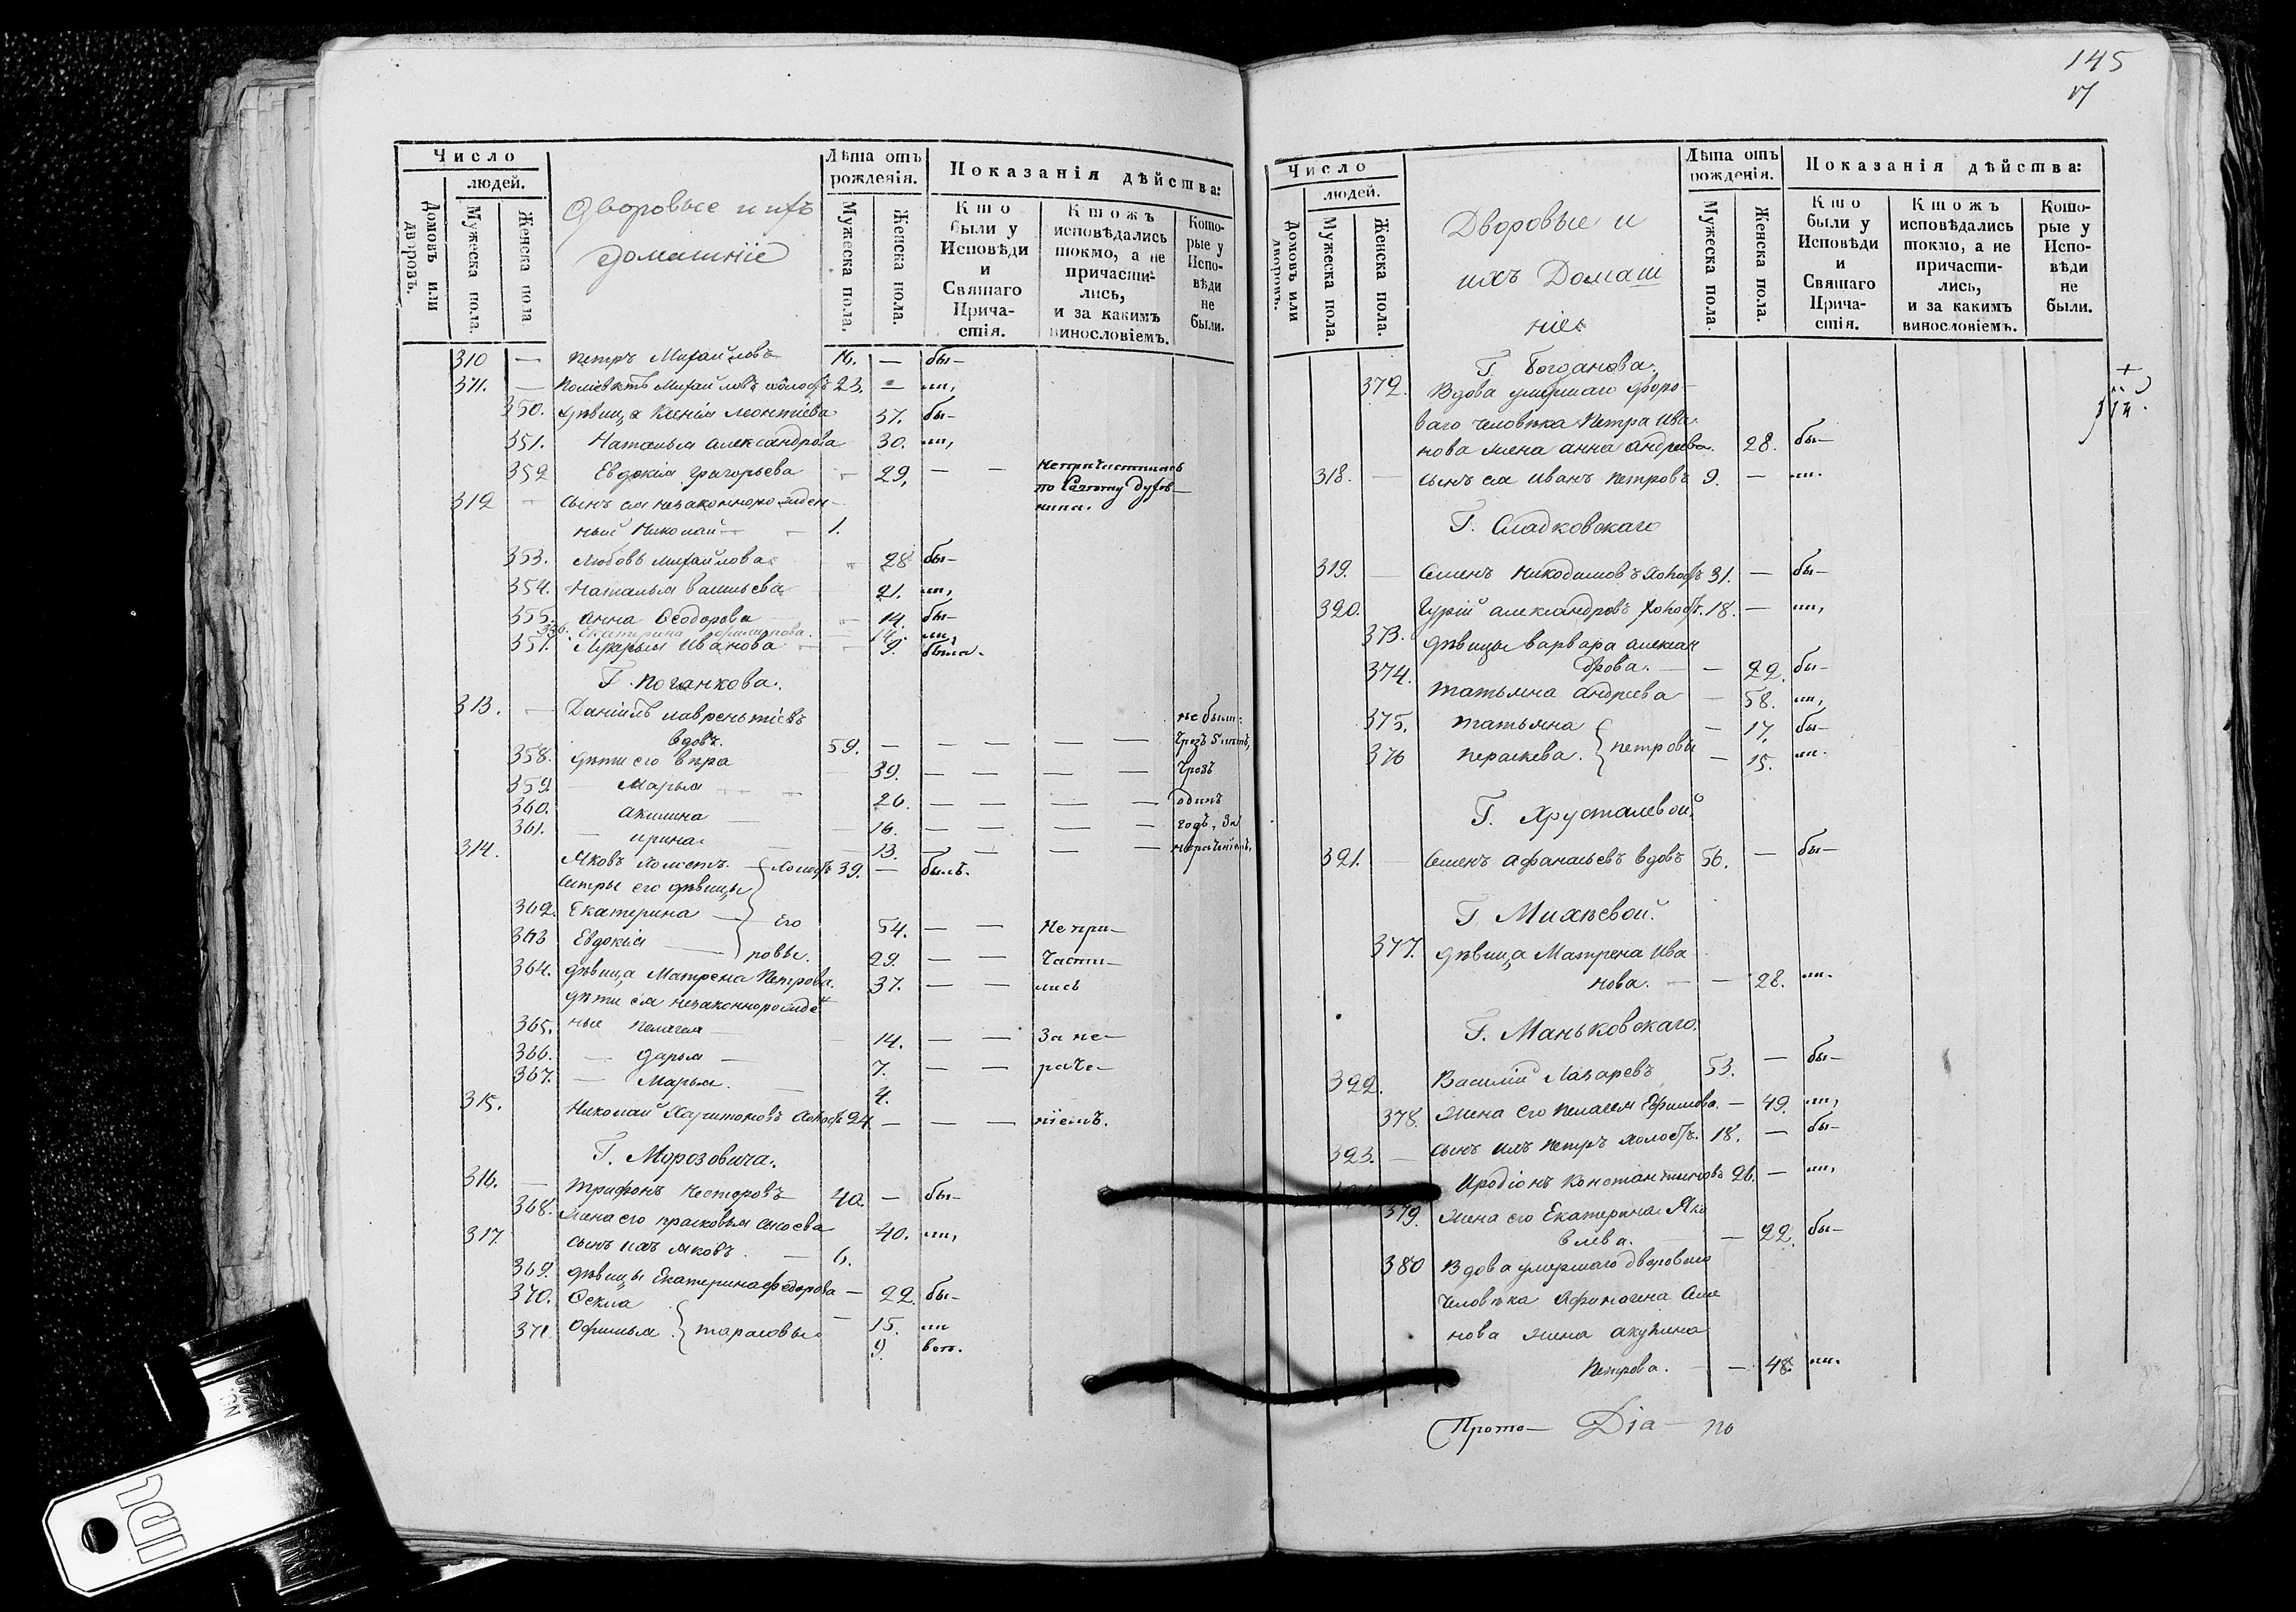 Число
людей.
Домовъ или дворовъ.
Мужеска пола.
Женска пола
Дворовые и ихъ
домашніе
Лѣта отъ рожденія.
Мужеска пола.
Женска пола.
Показанія дѣйства:
Кто были у Исповѣди и Святаго Причастія.
Ктожъ исповѣдались токмо, а не причастились, и за какимъ винословіемъ.
Которые у Исповѣди не были.
310 — Петръ Михайловъ 16. — бы—
311. — Михайловъ холостъ 23. — ли,
350. дѣвица Ксенія Леонтіева 37. бы—
351. Наталья Александрова 30. ли,
352 Евдокія Григорьева — 29, — — непричастилась
по совѣту духов—
ника.
312 — сынъ ея незаконнорожден—
ный Николай — — 1.
353. Любовь Михайлова — 28 бы—
354. Наталья Васильева 21. ли,
355. Анна Ѳеодорова — 14. бы—
356. Екатерина Филипова. — 14. ли
357. Марья Иванова — — 9. была.
Г. Поганкова.
313. — Даніилъ Лаврентіевъ не были:
вдовъ. 59. — — — — — чрезъ 5 лѣтъ,
358. дѣти его Вѣра 39. — — — — чрезъ
359 — Марья 26. — — — — одинъ
360. Акилина — 16. — — — — годъ, за
361. — Ирина. 13. — — — — нераченіемъ.
314. Яковъ — холостъ 39. — былъ.
сестры его дѣвицы
362. Екатерина — Его 54. — — Непри—
363 Евдокія — ровы. 29. — — части—
364. дѣвица Матрена Петрова. 37. — — лись
дѣти ея незаконнорожден
365. ные Пелагея 14. — — За не—
366. — Дарья — 7. — — раче—
367. — Марья. 4.
315. Николай Харитоновъ холостъ 24 — — — ніемъ.
Г. Морозовича.
316. — Трифонъ Несторовъ 40. — бы—
368. жена его Прасковья 40. ли,
317. сынъ ихъ Яковъ. — 6.
369. дѣвицы Екатерина Федорова — 22. бы—
370. Ѳекла — 15. ли
371 Офимья } Тарасовы 9. все.
145
Число
людей.
Домовъ или дворовъ.
Мужеска пола
Женска пола.
Дворовые и
ихъ Домаш
ніе
Лѣта отъ рожденія.
Мужеска пола.
Женска пола.
Показанія дѣйства:
Кто были у Исповѣди и Святаго Причастія.
Ктожъ исповѣдались токмо, а не причастились, и за какимъ винословіемъ.
Которые у Исповѣди не были.
Г. Богданова.
372. Вдова умершаго дворо—
ваго человѣка Петра Ива
нова жена Анна Андреева. 28. бы—
318. — сынъ ея Иванъ Петровъ 9. — ли.
Г. Сладковскаго
319. — Семенъ Никодимовъ холостъ 31. — бы—
320. Гурій Александровъ холостъ. 18. — ли,
373. дѣвицы Варвара Алексан
дрова. — — 22. бы—
374. Татьяна Андреева — 58. ли,
375. Татьяна — 17. бы—
376 Пераскева. } Петровы — 15. ли.
Г. Хрусталевой.
321. — Семенъ Афанасьевъ вдовъ 56. — бы—
Г. Михѣевой.
377. дѣвица Матрена Ива
нова. — — 28. ли.
Г. Маньковскаго.
322. Василій Лазаревъ 53. — бы—
378. жена его Пелагея Ефимова. — 49. ли,
323. — сынъ ихъ Петръ холостъ. 18. — бы—
Иродіонъ Константиновъ 26. — ли,
379. жена его Екатерина Яко
влева. — 22. бы—
380 Вдова умершаго двороваго
человѣка Афиногена Семе
нова жена Акулина
Петрова. — — 48. ли.
Прото— Dia— по